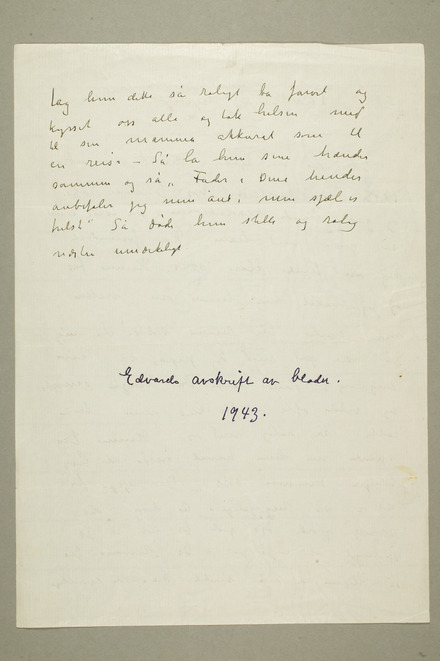 Lag hun dette så roligt ba farvel og
kysset oss alle og tok hilsen med
til sin mamma akkurat som til
en reise – Så la hun sine hænder
sammen og så, "Fader i Dine hender
anbefaler jeg min ånd, min sjæl er
frelst" Så døde hun stille og rolig
næsten umerkeligt
Edvards avskrift av blader.
1943.